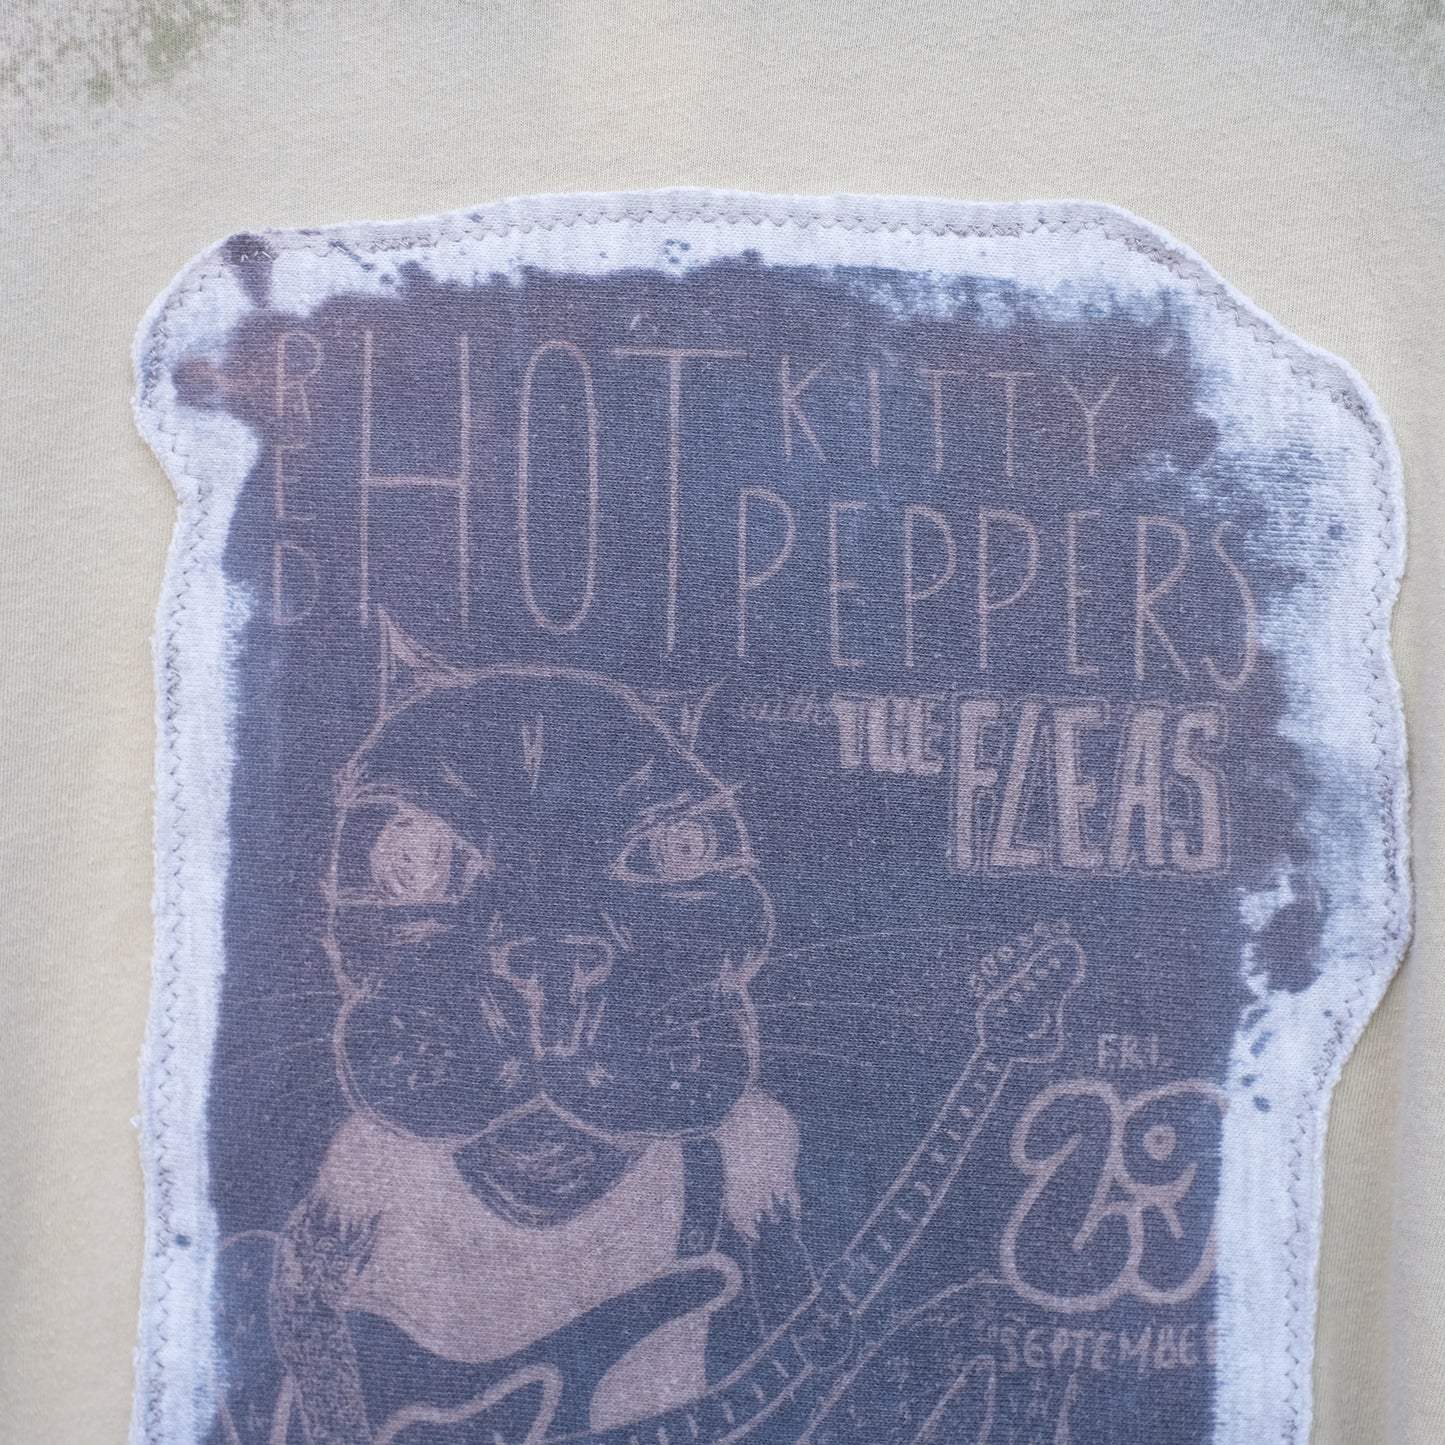 RED HOT KITTY
PEPPERS
with THE FLEAS
FRI.
SEPTEMBE